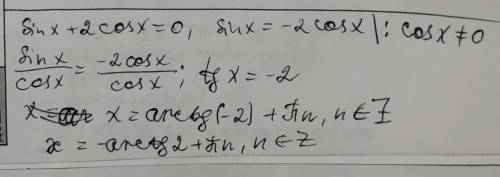 sinx + 2cosx = 0, sinx = -2cosx |: cosx ≠ 0
sinx/cosx = -2cosx/cosx; tg x = -2
x = arctg(-2) + πn, n ∈ Z
x = -arctg2 + πn, n ∈ Z